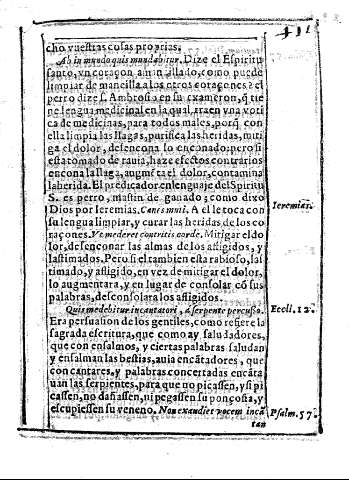 cho vuestras cosas proprias.
Ab in mundo quis mundabitur. Dize el Espiritu
santo, vn coraçon amanzillado, como puede
limpiar de mancilla a las otros coraçones? el
perro dize S. Ambrosio en su exameron, q̃ tie
ne lengua medicinal en la qual, traen vna voti
ca de medicinas, para todos males, porq̃ con
ella limpia las llagas, purifica las heridas, miti
ga el dolor, desencona lo enconado; pero si
esta tomado de rauia, haze efectos contrarios
encona la llaga, augmẽta el dolor, contamina
la herida. El predicador en lenguaje del Spiritu
S. es perro, mastin de ganado; como dixo
Dios por Ieremias. Canes muti. A el le toca con
Ieremiæ.
su lengua limpiar, y curar las heridas de los co
raçones. Vt mederet contritis corde. Mitigar el do
lor, desenconar las almas de los afligidos, y
lastimados. Pero si el tambien esta rabioso, las
timado, y afligido, en vez de mitigar el dolor,
lo augmentara, y en lugar de consolar cõ sus
palabras, desconsolara los afligidos.
Quis medebitur incantatori, à serpente percusso.
Eccli. 12.
Era persuasion de los gentiles, como refiere la
sagrada escritura, que como ay saludadores,
que con ensalmos, y ciertas palabras saludan
y ensalman las bestias, auia encãtadores, que
con cantares, y palabras concertadas encãta
uan las serpientes, para que no picassen, y si pi
cassen, no dañassen, ni pegassen su ponçoña, y
escupiessen su veneno. Non exaudiet vocem incã
Psalm. 57.
tan